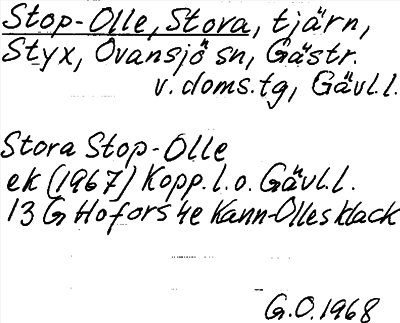 Stop-Olle, Stora, tjärn,
Styx, Ovansjö sn, Gästr.
v. doms.tg, Gävl.l.
Stora Stop-Olle
ek (1967) Kopp.l.o. Gävl.l.
13 G Hofors 4e Kann-Olles klack
G.O. 1968